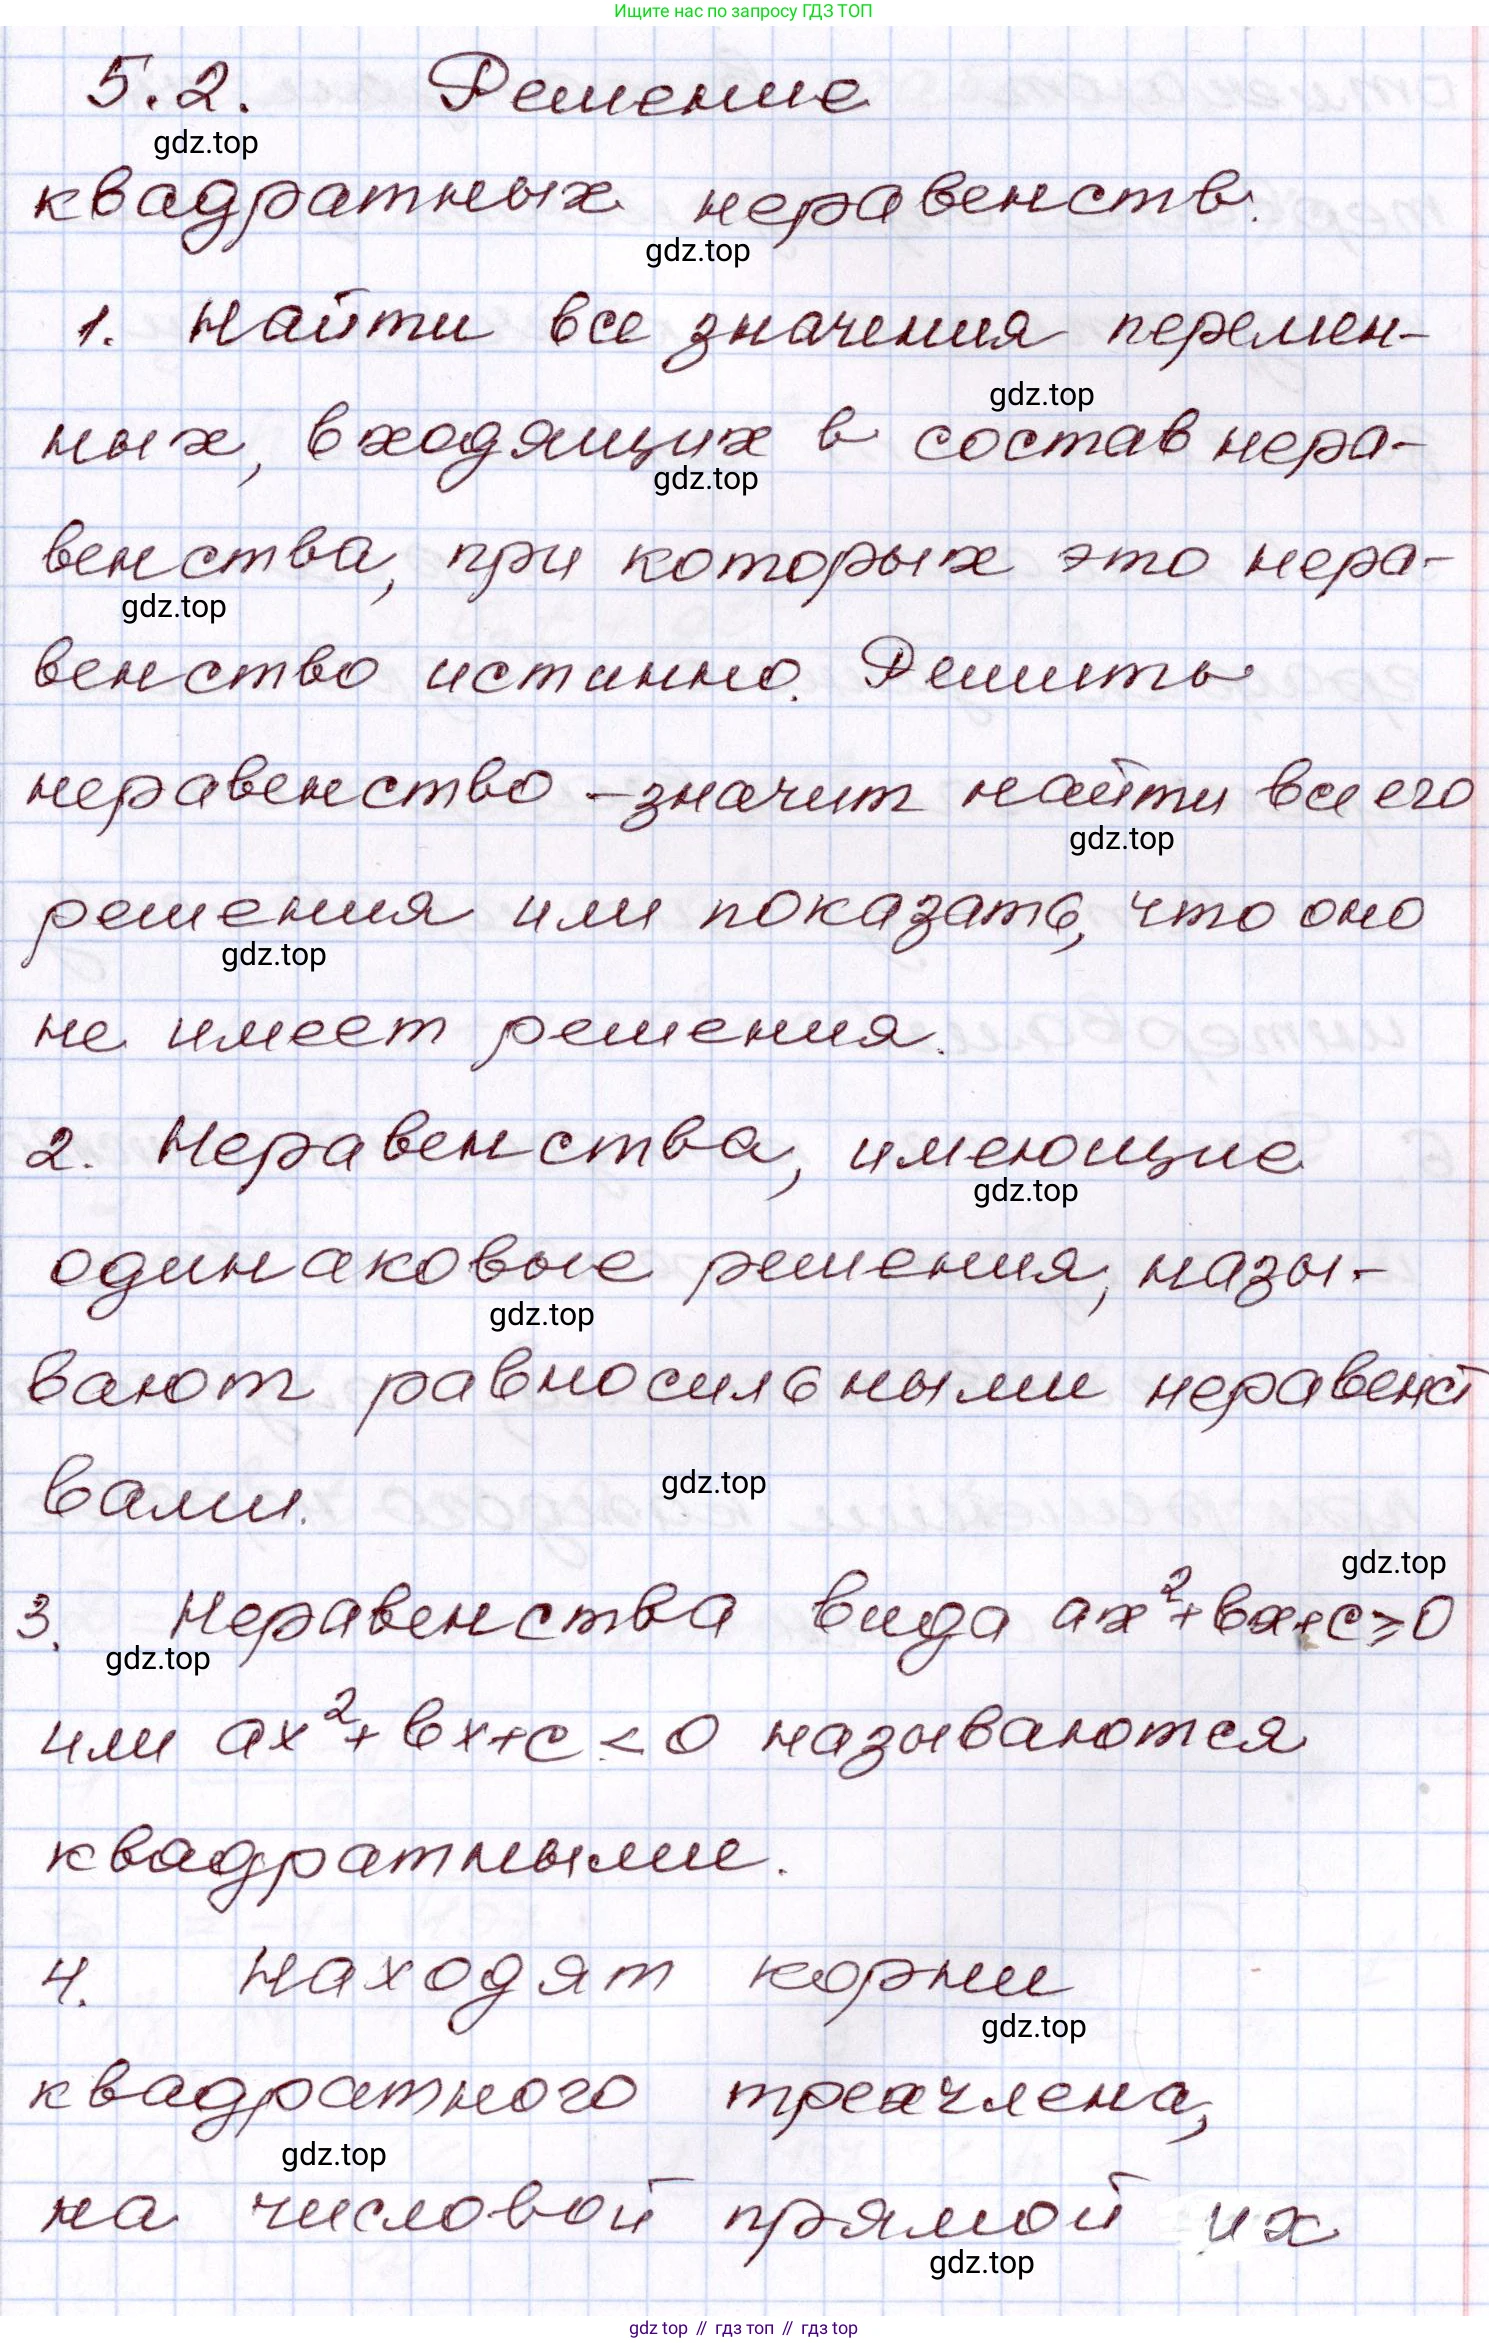 Ищите нас по запросу ГДЗ ТОП
5.2. Решение
gdz.top
квадратных неравенств.
gdz.top
1. Найти все значения перемен-
gdz.top
ных, входящих в состав нера-
gdz.top
венства, при которых это нера-
gdz.top
венство истинно. Решить
неравенство – значит найти все его
gdz.top
решения или показать, что оно
gdz.top
не имеет решения.
2. Неравенства, имеющие
gdz.top
одинаковые решения, назы-
gdz.top
вают равносильными неравенст
вами.
gdz.top
gdz.top
3. Неравенства вида ax²+bx+c⩾0
gdz.top
или ax²+bx+c<0 называются
квадратными.
4. Находят корни
gdz.top
квадратного трехчлена,
gdz.top
на числовой прямой их
gdz.top
gdz top // гдз топ // гдз top